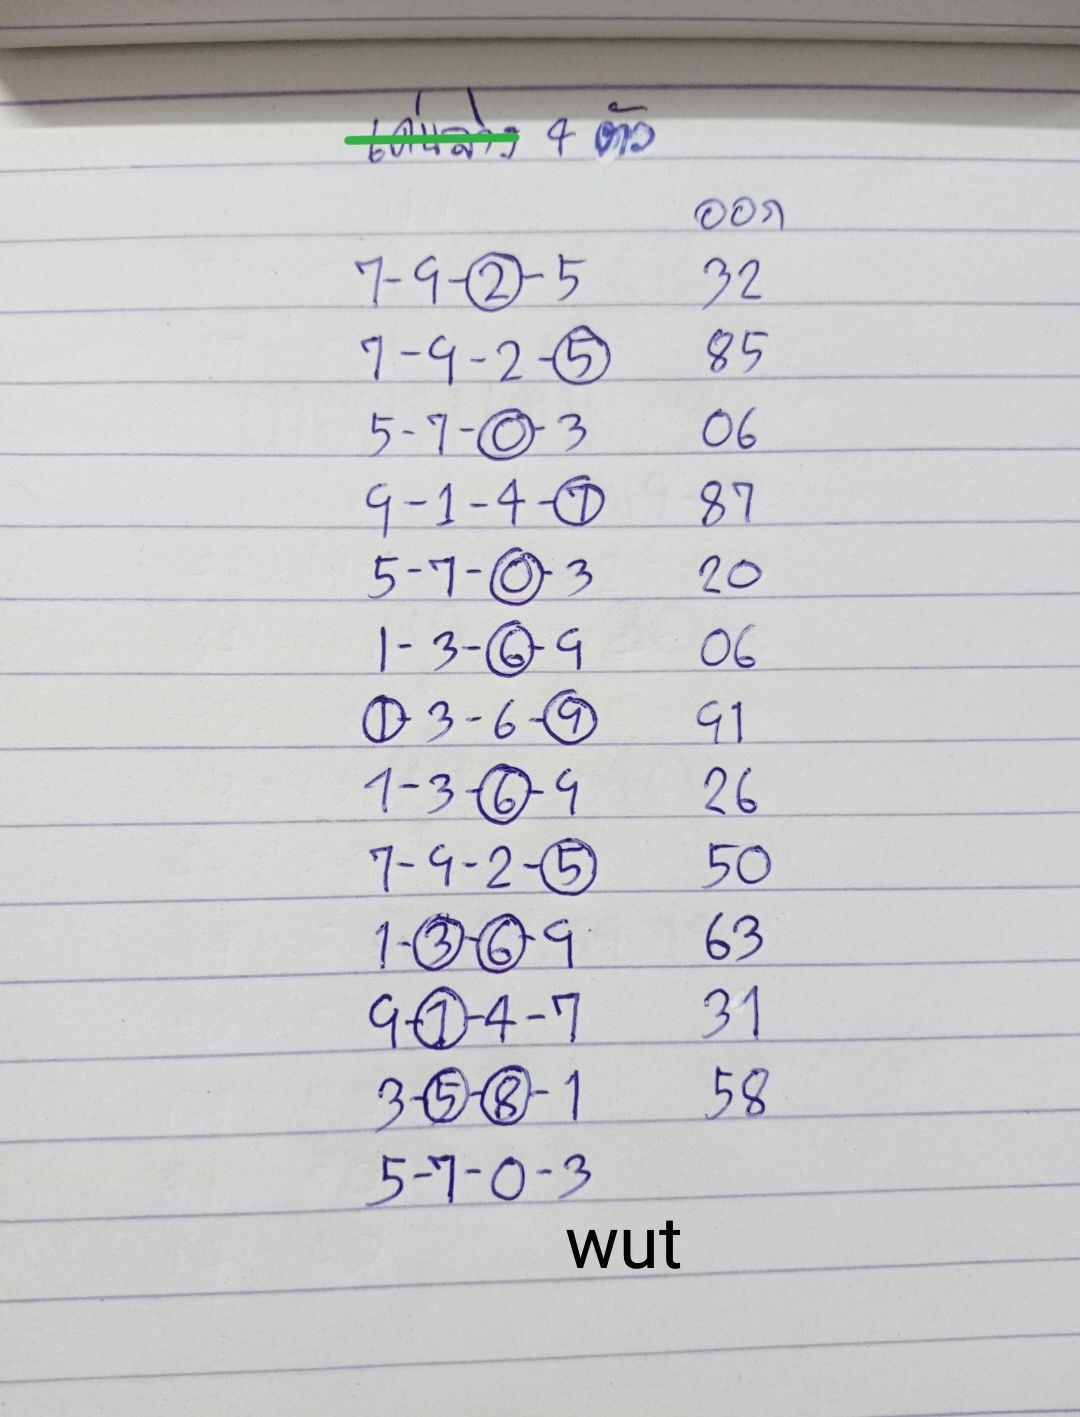 เด่นล่าง 4 ตัว
ออก
7-9-2-5 32
7-9-2-5 85
5-7-0-3 06
9-1-4-7 87
5-7-0-3 20
1-3-6-9 06
1-3-6-9 91
1-3-6-9 26
7-9-2-5 50
1-3-6-9 63
9-1-4-7 31
3-5-8-1 58
5-7-0-3
wut